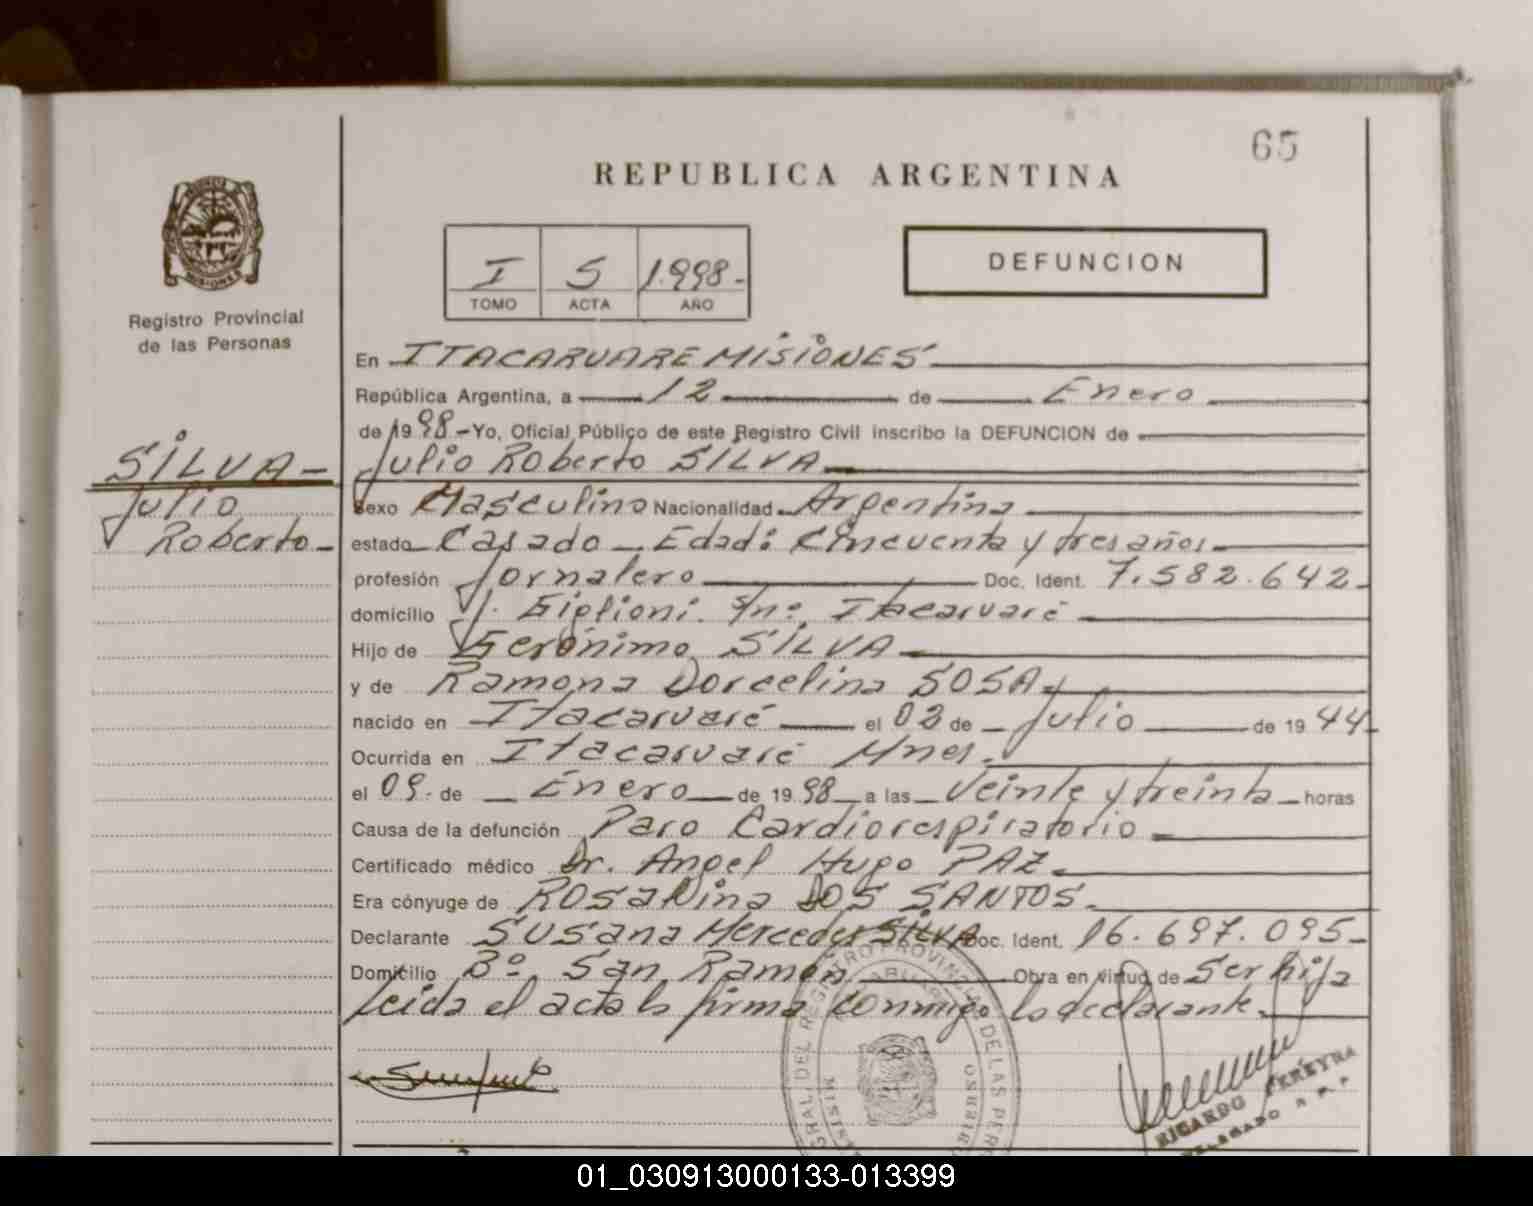 65
REPUBLICA ARGENTINA
I 5 1.998.-
TOMO ACTA AÑO
DEFUNCION
MISIONES
Registro Provincial
de las Personas
SILVA-
Julio
Roberto-
En ITACARUARE MISIONES
República Argentina, a 12 de Enero
de 1998.-Yo, Oficial Público de este Registro Civil inscribo la DEFUNCION de
Julio Roberto SILVA
Sexo Masculino Nacionalidad Argentina
estado Casado Edad: Cincuenta y tres años
profesión Jornalero Doc. Ident. 7.582.642-
domicilio J. Giglioni. s/nº. Itacaruaré
Hijo de Gerónimo SILVA
y de Ramona Dorcelina SOSA
nacido en Itacaruaré el 02 de Julio de 1944-
Ocurrida en Itacaruaré Mnes.
el 09. de Enero de 1998 a las Veinte y treinta horas
Causa de la defunción Paro Cardiorespiratorio
Certificado médico Dr. Angel Hugo PAZ
Era cónyuge de Rosalina DOS SANTOS
Declarante Susana Mercedes SILVA Doc. Ident. 16.697.095-
Domicilio Bº. San Ramón Obra en virtud de Ser hija
Leida el acta la firma conmigo la declarante.
RICARDO PEREYRA
DELEGADO R.P.P.
01_030913000133-013399